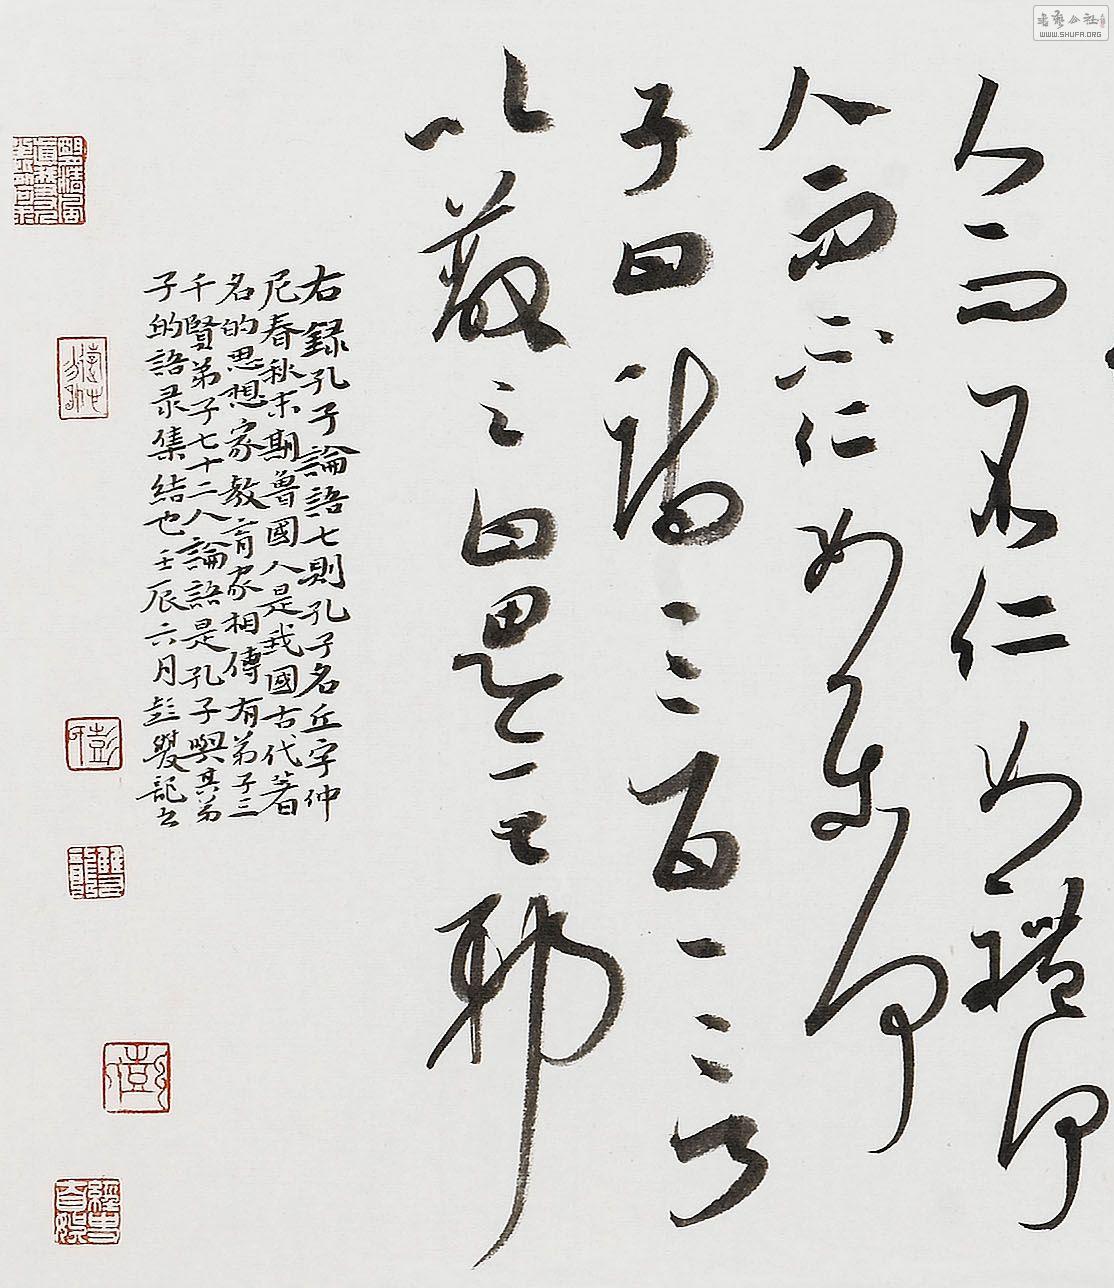 人而不仁如禮何
人而不仁如樂何
子曰詩三百一言
以蔽之曰思無邪
右録孔子論語七則孔子名丘字仲
尼春秋末期魯國人是我國古代著
名的思想家教育家相傳有弟子三
千賢弟子七十二人論語是孔子與其弟
子的語录集結也壬辰六月彭雙記之
彭
書藝公社
WWW.SHUFA.ORG